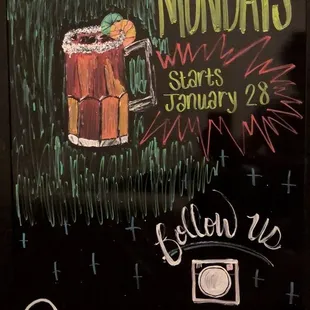 MONDAYS
Starts
January 28
follow us